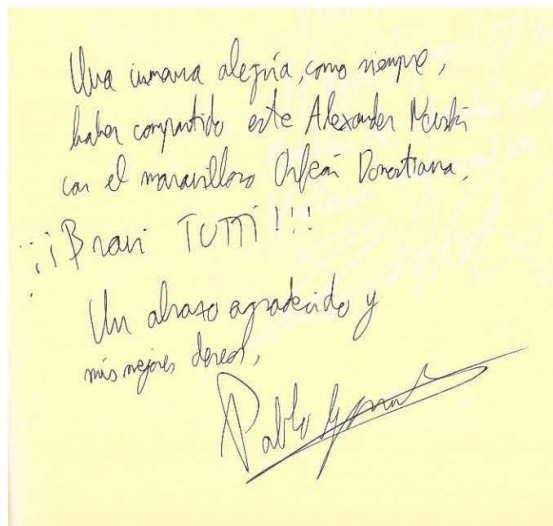 Una inmensa alegría, como siempre,
haber compartido este Alexander Nevski
con el maravilloso Orfeón Donostiarra.
¡¡¡Bravi TUTTI!!!
Un abrazo agradecido y
mis mejores deseos,
Pablo